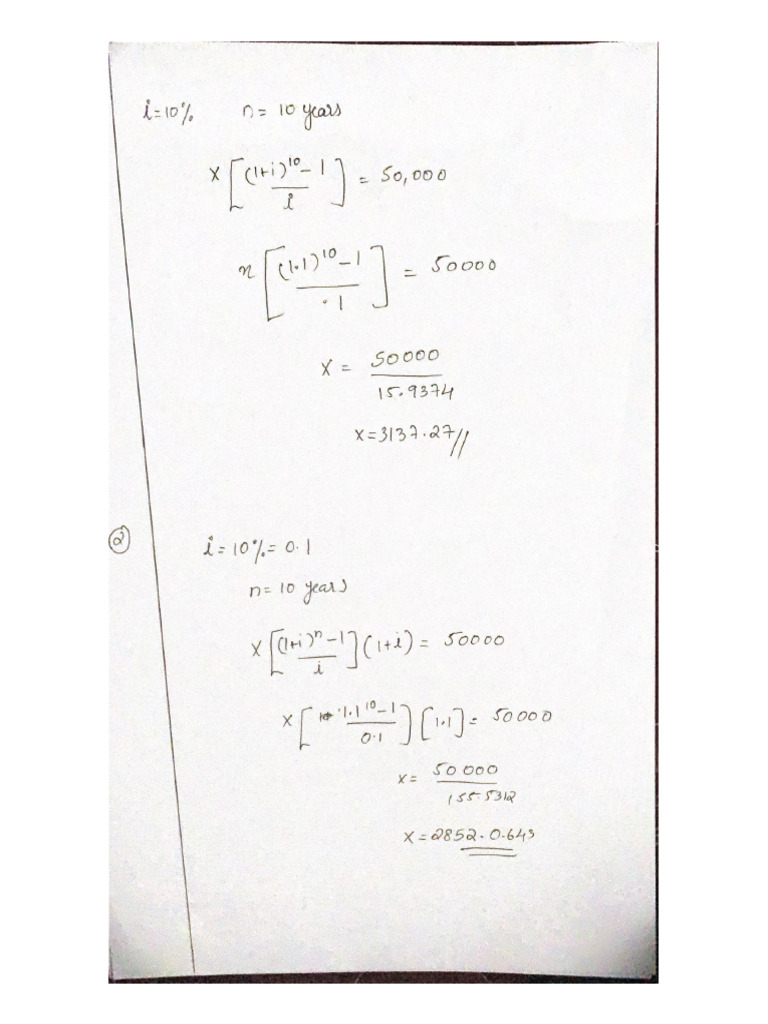 i=10% n= 10 years
x[((1+i)^10 - 1)/i] = 50,000
x[((1.1)^10 - 1)/.1] = 50000
x = 50000/15.9374
x=3137.27//
② i=10%=0.1
n=10 years
x[((1+i)^n - 1)/i](1+i) = 50000
x[(1.1^10 - 1)/0.1][1.1] = 50000
x= 50000/155.5312
x=2852.0.643